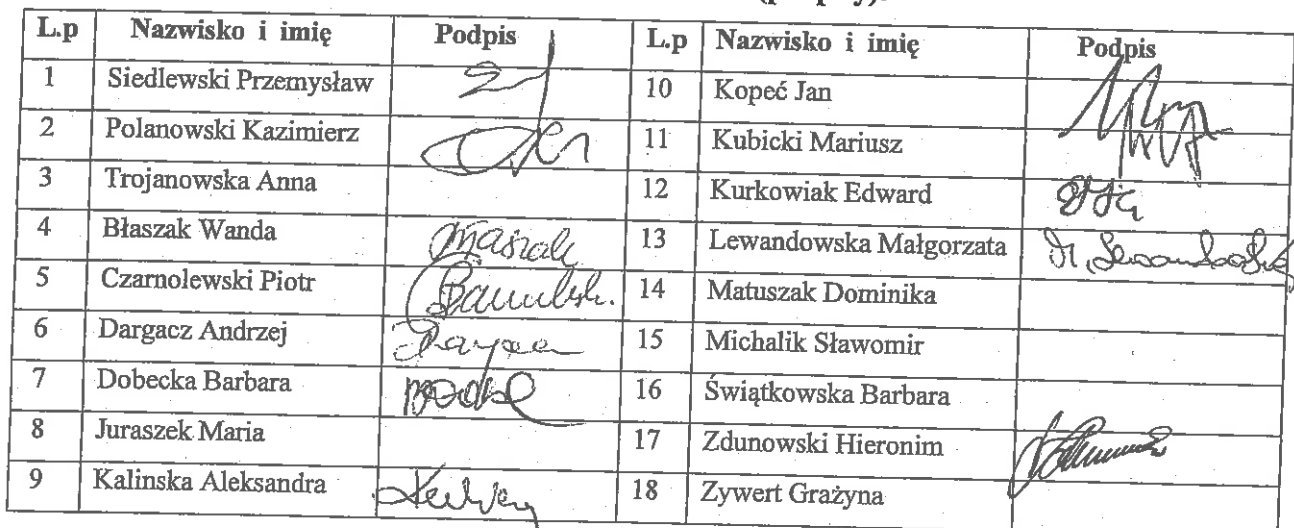 L.p Nazwisko i imię Podpis L.p Nazwisko i imię Podpis
1 Siedlewski Przemysław 10 Kopeć Jan
2 Polanowski Kazimierz 11 Kubicki Mariusz
3 Trojanowska Anna 12 Kurkowiak Edward
4 Błaszak Wanda 13 Lewandowska Małgorzata
5 Czarnolewski Piotr 14 Matuszak Dominika
6 Dargacz Andrzej 15 Michalik Sławomir
7 Dobecka Barbara 16 Świątkowska Barbara
8 Juraszek Maria 17 Zdunowski Hieronim
9 Kalinska Aleksandra 18 Zywert Grażyna